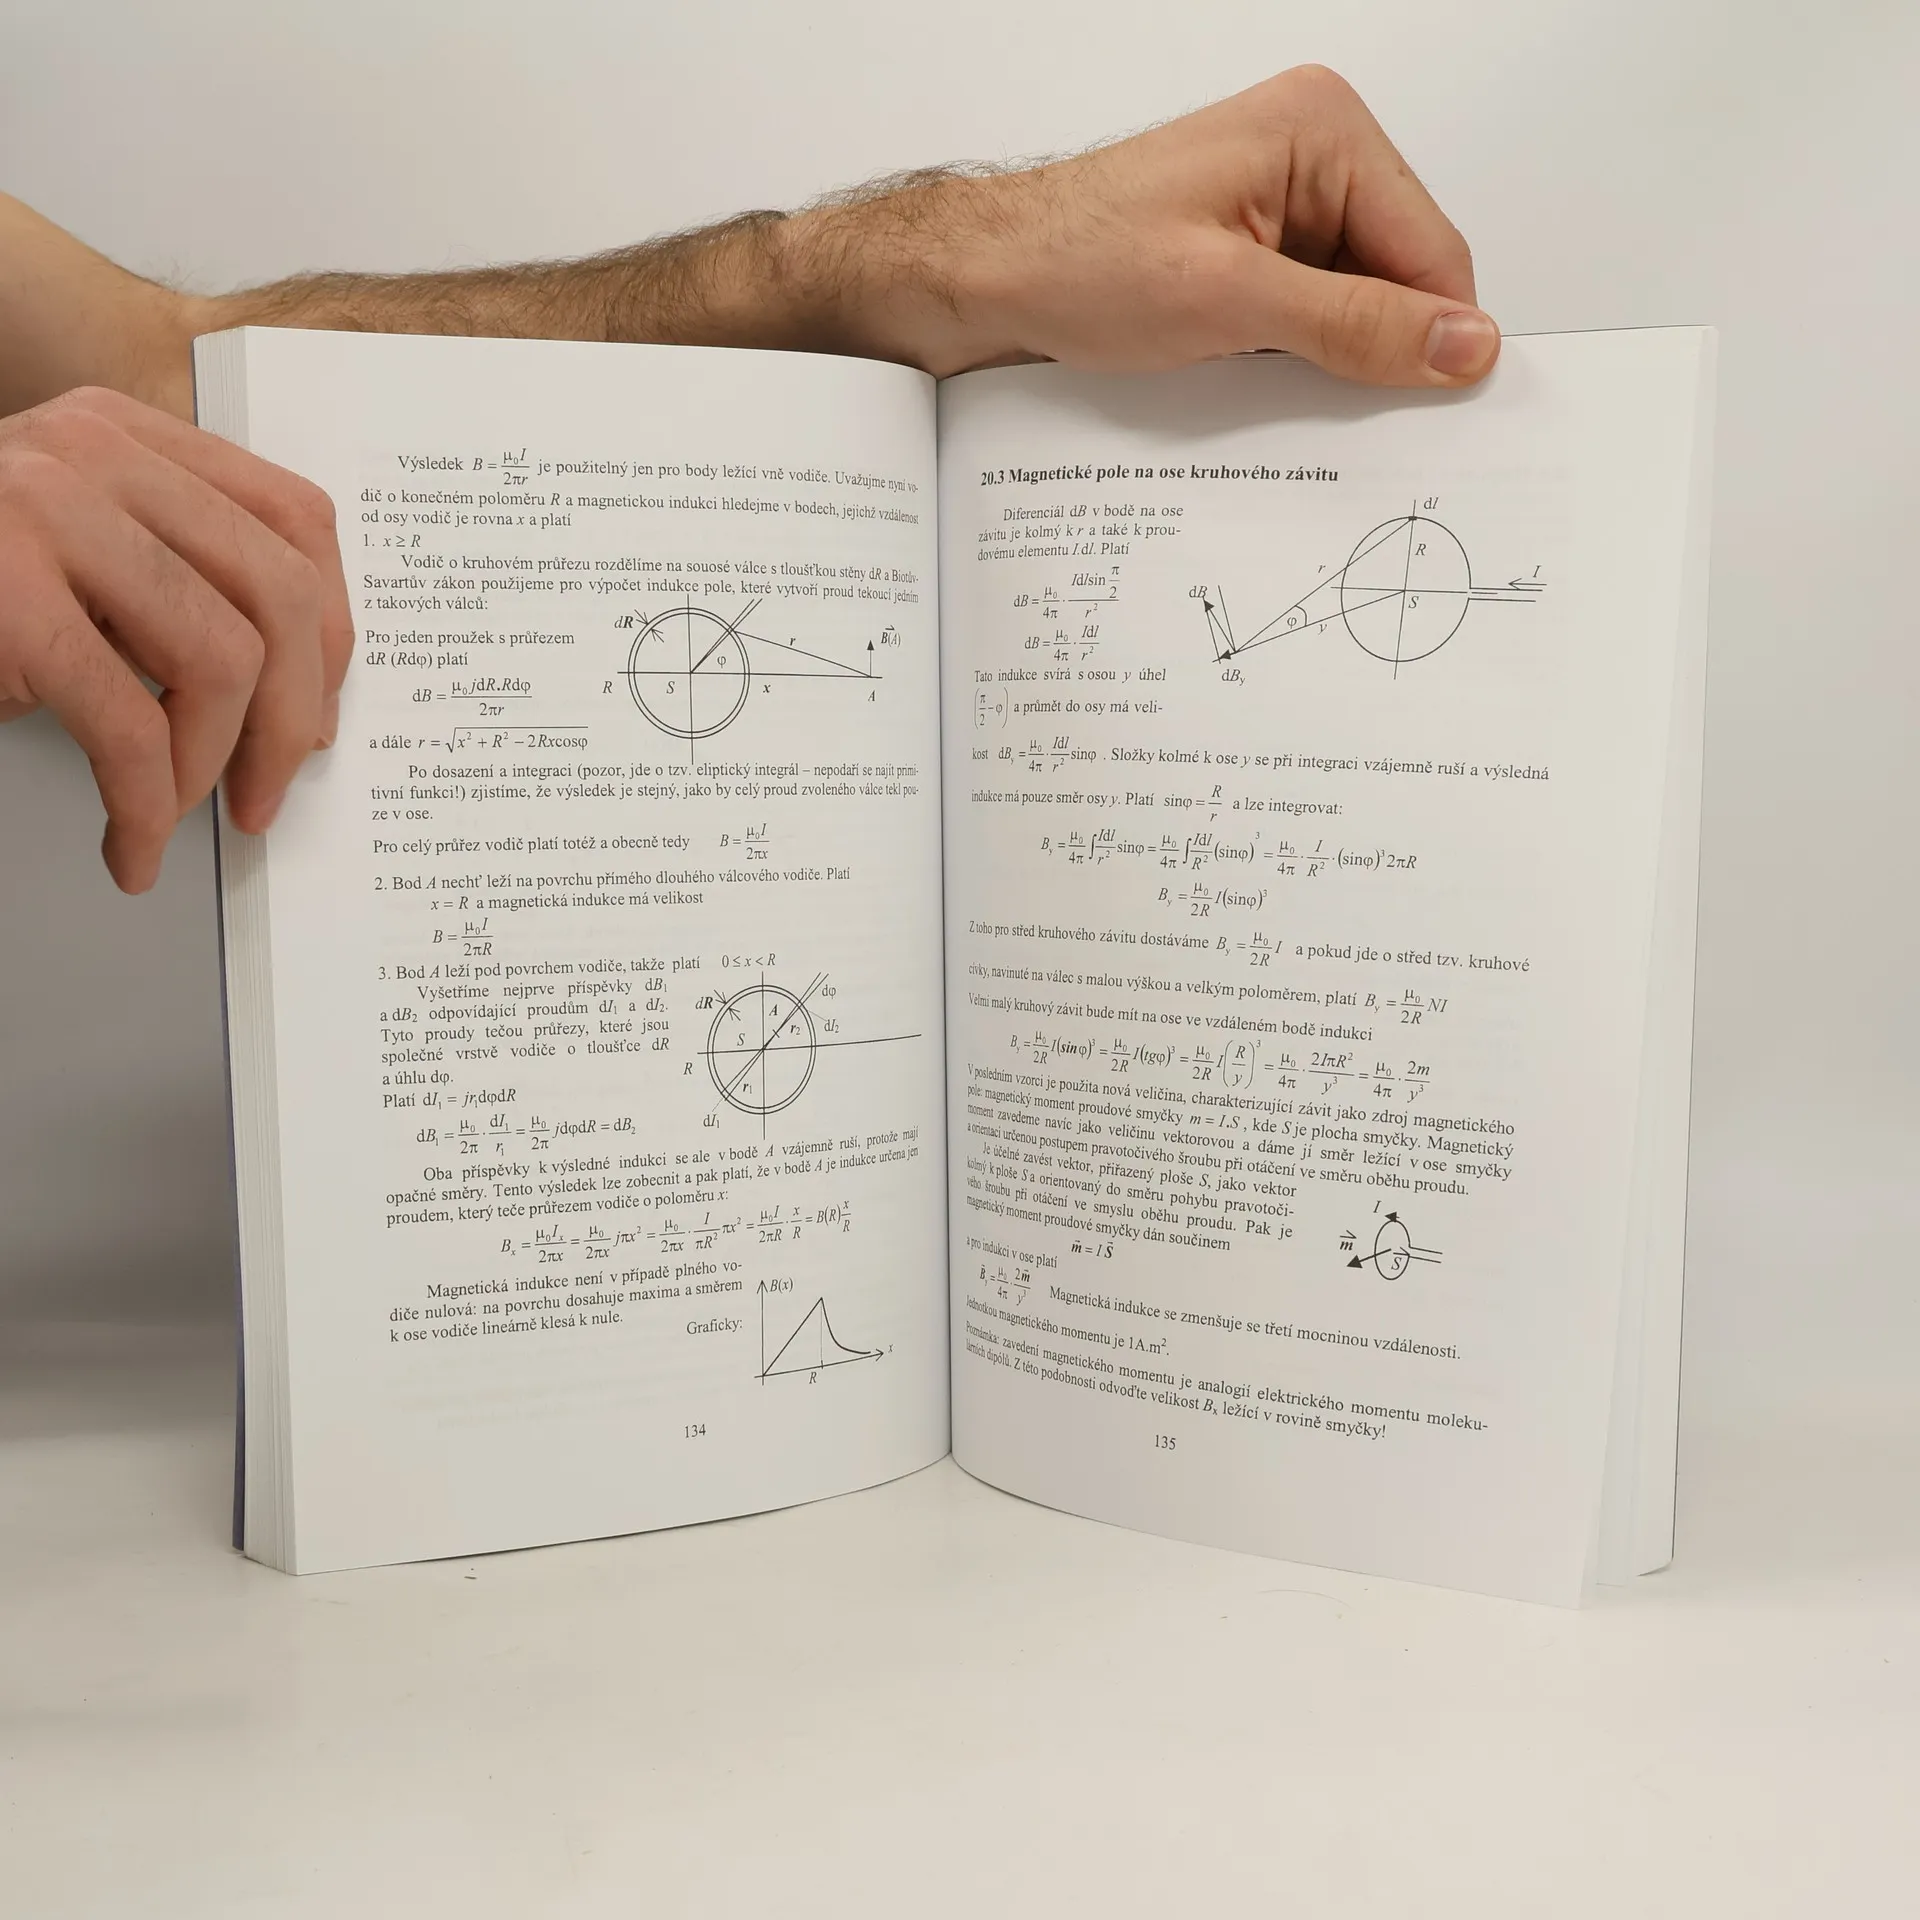 Výsledek B = μ₀I / 2πr je použitelný jen pro body ležící vně vodiče. Uvažujme nyní vo-
dič o konečném poloměru R a magnetickou indukci hledejme v bodech, jejichž vzdálenost
od osy vodič je rovna x a platí
1. x ≥ R
Vodič o kruhovém průřezu rozdělíme na souosé válce s tloušťkou stěny dR a Biotův-
Savartův zákon použijeme pro výpočet indukce pole, které vytvoří proud tekoucí jedním
z takových válců:
Pro jeden proužek s průřezem
dR (Rdφ) platí
dB = μ₀jdR.Rdφ / 2πr
a dále r = √(x² + R² − 2Rxcosφ)
dR
r
B⃗(A)
φ
R S x A
Po dosazení a integraci (pozor, jde o tzv. eliptický integrál – nepodaří se najít primi-
tivní funkci!) zjistíme, že výsledek je stejný, jako by celý proud zvoleného válce tekl pou-
ze v ose.
Pro celý průřez vodič platí totéž a obecně tedy B = μ₀I / 2πx
2. Bod A nechť leží na povrchu přímého dlouhého válcového vodiče. Platí
x = R a magnetická indukce má velikost
B = μ₀I / 2πR
3. Bod A leží pod povrchem vodiče, takže platí 0 ≤ x < R
Vyšetříme nejprve příspěvky dB₁
a dB₂ odpovídající proudům dI₁ a dI₂.
Tyto proudy tečou průřezy, které jsou
společné vrstvě vodiče o tloušťce dR
a úhlu dφ.
Platí dI₁ = jr₁dφdR
dB₁ = μ₀/2π · dI₁/r₁ = μ₀/2π jdφdR = dB₂
dR
dφ
A
S r₂ dI₂
R
r₁
dI₁
Oba příspěvky k výsledné indukci se ale v bodě A vzájemně ruší, protože mají
opačné směry. Tento výsledek lze zobecnit a pak platí, že v bodě A je indukce určena jen
proudem, který teče průřezem vodiče o poloměru x:
Bₓ = μ₀Iₓ/2πx = μ₀/2πx jπx² = μ₀/2πx · I/πR² πx² = μ₀I/2πR · x/R = B(R) x/R
Magnetická indukce není v případě plného vo-
diče nulová: na povrchu dosahuje maxima a směrem
k ose vodiče lineárně klesá k nule.
Graficky:
B(x)
x
R
134
20.3 Magnetické pole na ose kruhového závitu
Diferenciál dB v bodě na ose
závitu je kolmý k r a také k prou-
dovému elementu I.dl. Platí
dB = μ₀/4π · Idlsin π/2 / r²
dB = μ₀/4π · Idl/r²
Tato indukce svírá s osou y úhel
(π/2 − φ) a průmět do osy má veli-
dl
R
r
I
dB
S
φ y
dBy
kost dBy = μ₀/4π · Idl/r² sinφ . Složky kolmé k ose y se při integraci vzájemně ruší a výsledná
indukce má pouze směr osy y. Platí sinφ = R/r a lze integrovat:
By = μ₀/4π ∫ Idl/r² sinφ = μ₀/4π ∫ Idl/R² (sinφ)³ = μ₀/4π · I/R² · (sinφ)³ 2πR
By = μ₀/2R I(sinφ)³
Z toho pro střed kruhového závitu dostáváme By = μ₀/2R I a pokud jde o střed tzv. kruhové
cívky, navinuté na válec s malou výškou a velkým poloměrem, platí By = μ₀/2R NI
Velmi malý kruhový závit bude mít na ose ve vzdáleném bodě indukci
By = μ₀/2R I(sinφ)³ = μ₀/2R I(tgφ)³ = μ₀/2R I(R/y)³ = μ₀/4π · 2IπR²/y³ = μ₀/4π · 2m/y³
V posledním vzorci je použita nová veličina, charakterizující závit jako zdroj magnetického
pole: magnetický moment proudové smyčky m = I.S , kde S je plocha smyčky. Magnetický
moment zavedeme navíc jako veličinu vektorovou a dáme jí směr ležící v ose smyčky
a orientaci určenou postupem pravotočivého šroubu při otáčení ve směru oběhu proudu.
Je účelné zavést vektor, přiřazený ploše S, jako vektor
kolmý k ploše S a orientovaný do směru pohybu pravotoči-
vého šroubu při otáčení ve smyslu oběhu proudu. Pak je
magnetický moment proudové smyčky dán součinem
m⃗ = I S⃗
I
m⃗
S⃗
a pro indukci v ose platí
B⃗y = μ₀/4π · 2m⃗/y³ Magnetická indukce se zmenšuje se třetí mocninou vzdálenosti.
Jednotkou magnetického momentu je 1A.m².
Poznámka: zavedení magnetického momentu je analogií elektrického momentu moleku-
lárních dipólů. Z této podobnosti odvoďte velikost Bₓ ležící v rovině smyčky!
135